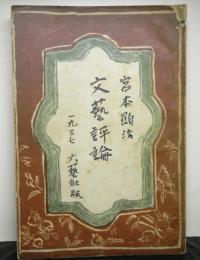 宮本顕治
文藝評論
一九三七 六藝社版